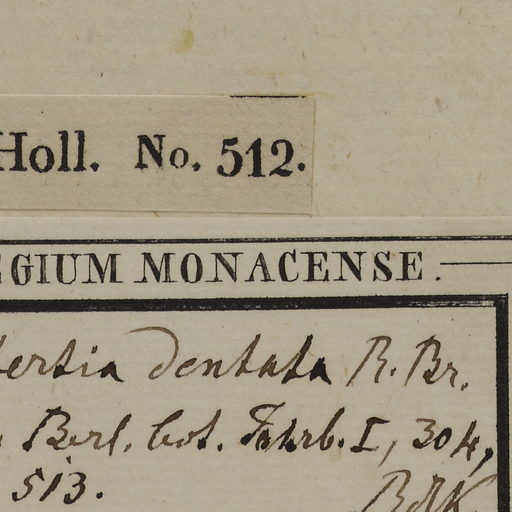 Holl. No. 512.
EGIUM MONACENSE.
ertia dentata R. Br.
Berl. bot. Jahrb. I, 304,
513.